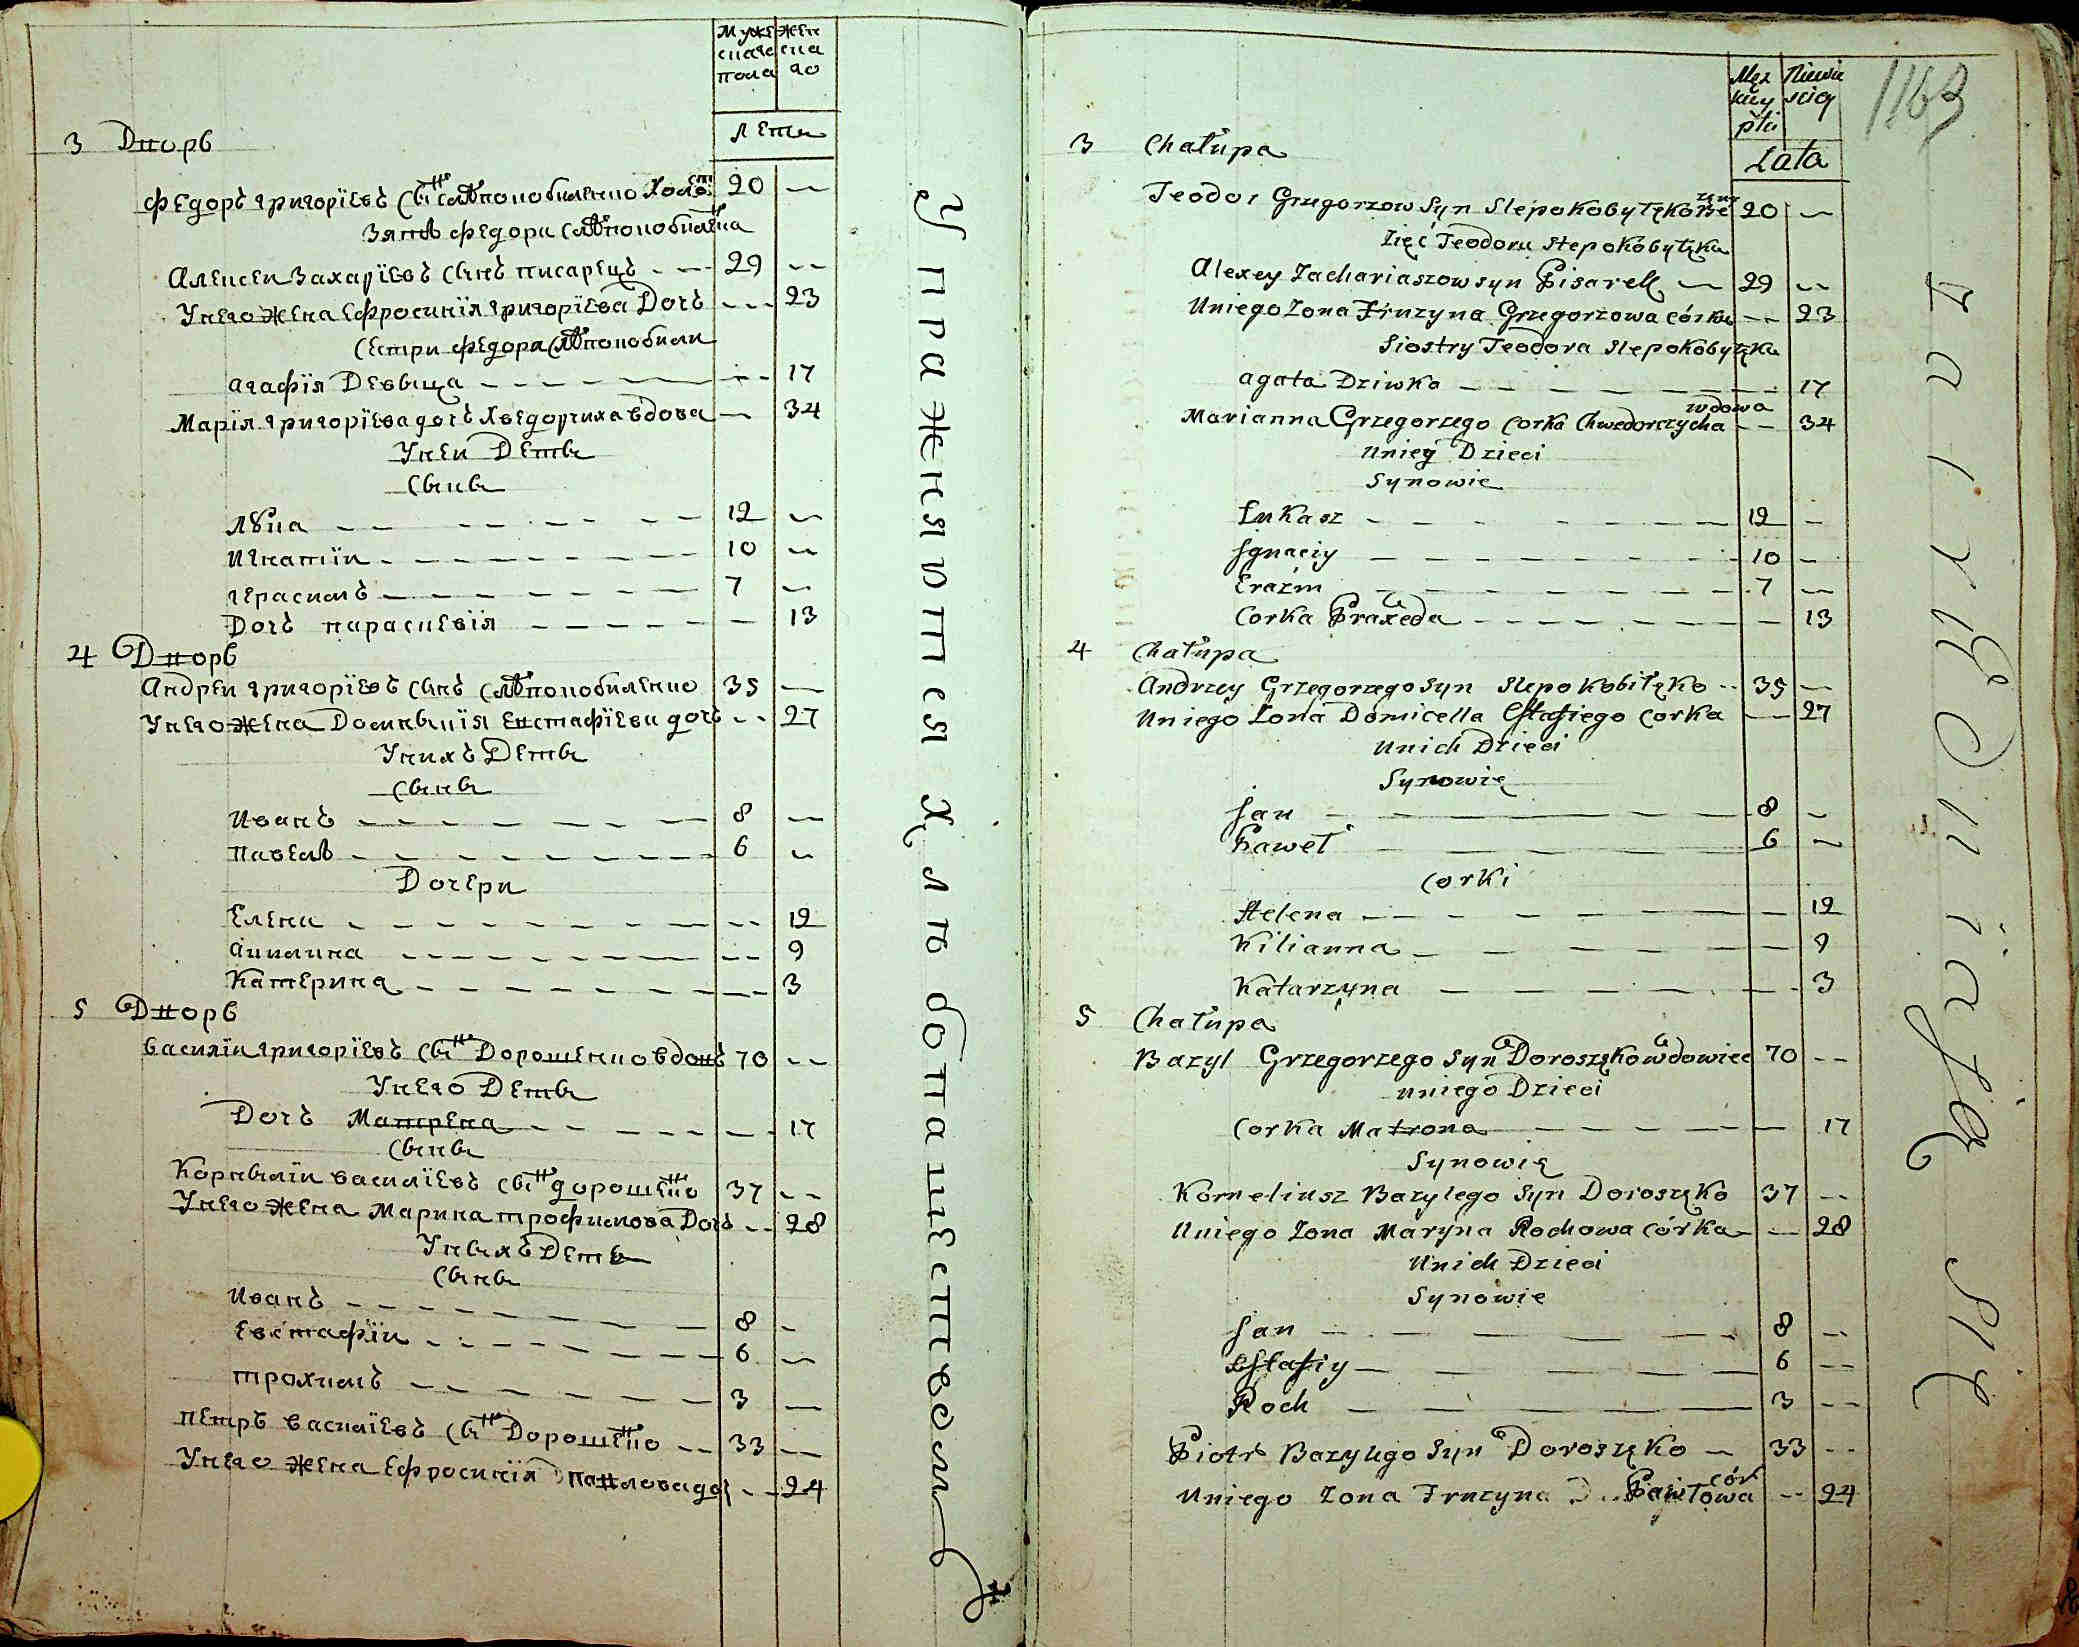 Мужескаго пола Женскаго
Лета
3 Дворъ
Федоръ Григорїевъ сынъ Слѣпокобиленко холос: 20
Зять Федора Слѣпокобиленка
Алексей Захарїевъ сынъ Писарецъ 29
У него жена Ефросинїя Григорїева дочь 23
Сестри Федора Слѣпокобили
Агафїя девица 17
Марїя Григорїева дочъ Хведорчиха вдова 34
У неи дети
Сыны
Лука 12
Игнатїи 10
Герасимъ 7
Дочъ Параскевїя 13
4 Дворъ
Андрѣи Григорїевъ сынъ Слѣпокобиленко 35
У него жена Домникїя Евстафїеви дочъ 27
У нихъ дети
Сыны
Иванъ 8
Павелъ 6
Дочери
Елена 12
Акилина 9
Катерина 3
5 Дворъ
Василїи Григорїевъ сынъ Дорошенко вдовъ 70
У него дети
Дочъ Матрена 17
Сыны
Корнылїи Василїевъ сынъ Дорошенко 37
У него жена Марина Трофимова дочъ 28
У ныхъ дети
Сыны
Иванъ 8
Евстафїи 6
Трохимъ 3
Петръ Василїевъ сынъ Дорошенко 33
У него жена Ефросинїя Павлова доч 24
Упражняются хлѣбопашеством
1163
Męzkiey płci Niewiescią
Lata
3 Chałupa
Teodor Grzegorzow Syn Slepokobyłęko 20
Zięć Teodora Slepokobyłęka
Alexey Zachariaszow syn Pisarek 29
Uniego Zona Fruzyna Grzegorzowa córka 23
Siostry Teodora Slepokobyłęka
Agata Dziwka 17
wdowa
Marianna Grzegorzego Corka Chwedorczycha 34
Unieg Dzieci
Synowie
Łukasz 12
Jgnaciy 10
Erazm 7
Corka Praxeda 13
4 Chałupa
Andrzey Grzegorzego Syn Slepokobiłęko 35
Uniego Zona Domicella Estafiego Corka 27
Unich Dzieci
Synowie
Jan 8
Paweł 6
Corki
Helena 12
Kilianna 9
Katarzyna 3
5 Chałupa
Bazyl Grzegorzego Syn Doroszęko wdowiec 70
uniego Dzieci
Corka Matrona 17
Synowie
Korneliusz Bazylego Syn Doroszęko 37
Uniego Zona Maryna Rochowa Córka 28
Unich Dzieci
Synowie
Jan 8
Estafiy 6
Roch 3
Piotr Bazylego Syn Doroszęko 33
Uniego Zona Fruzyna Pawłowa cór 24